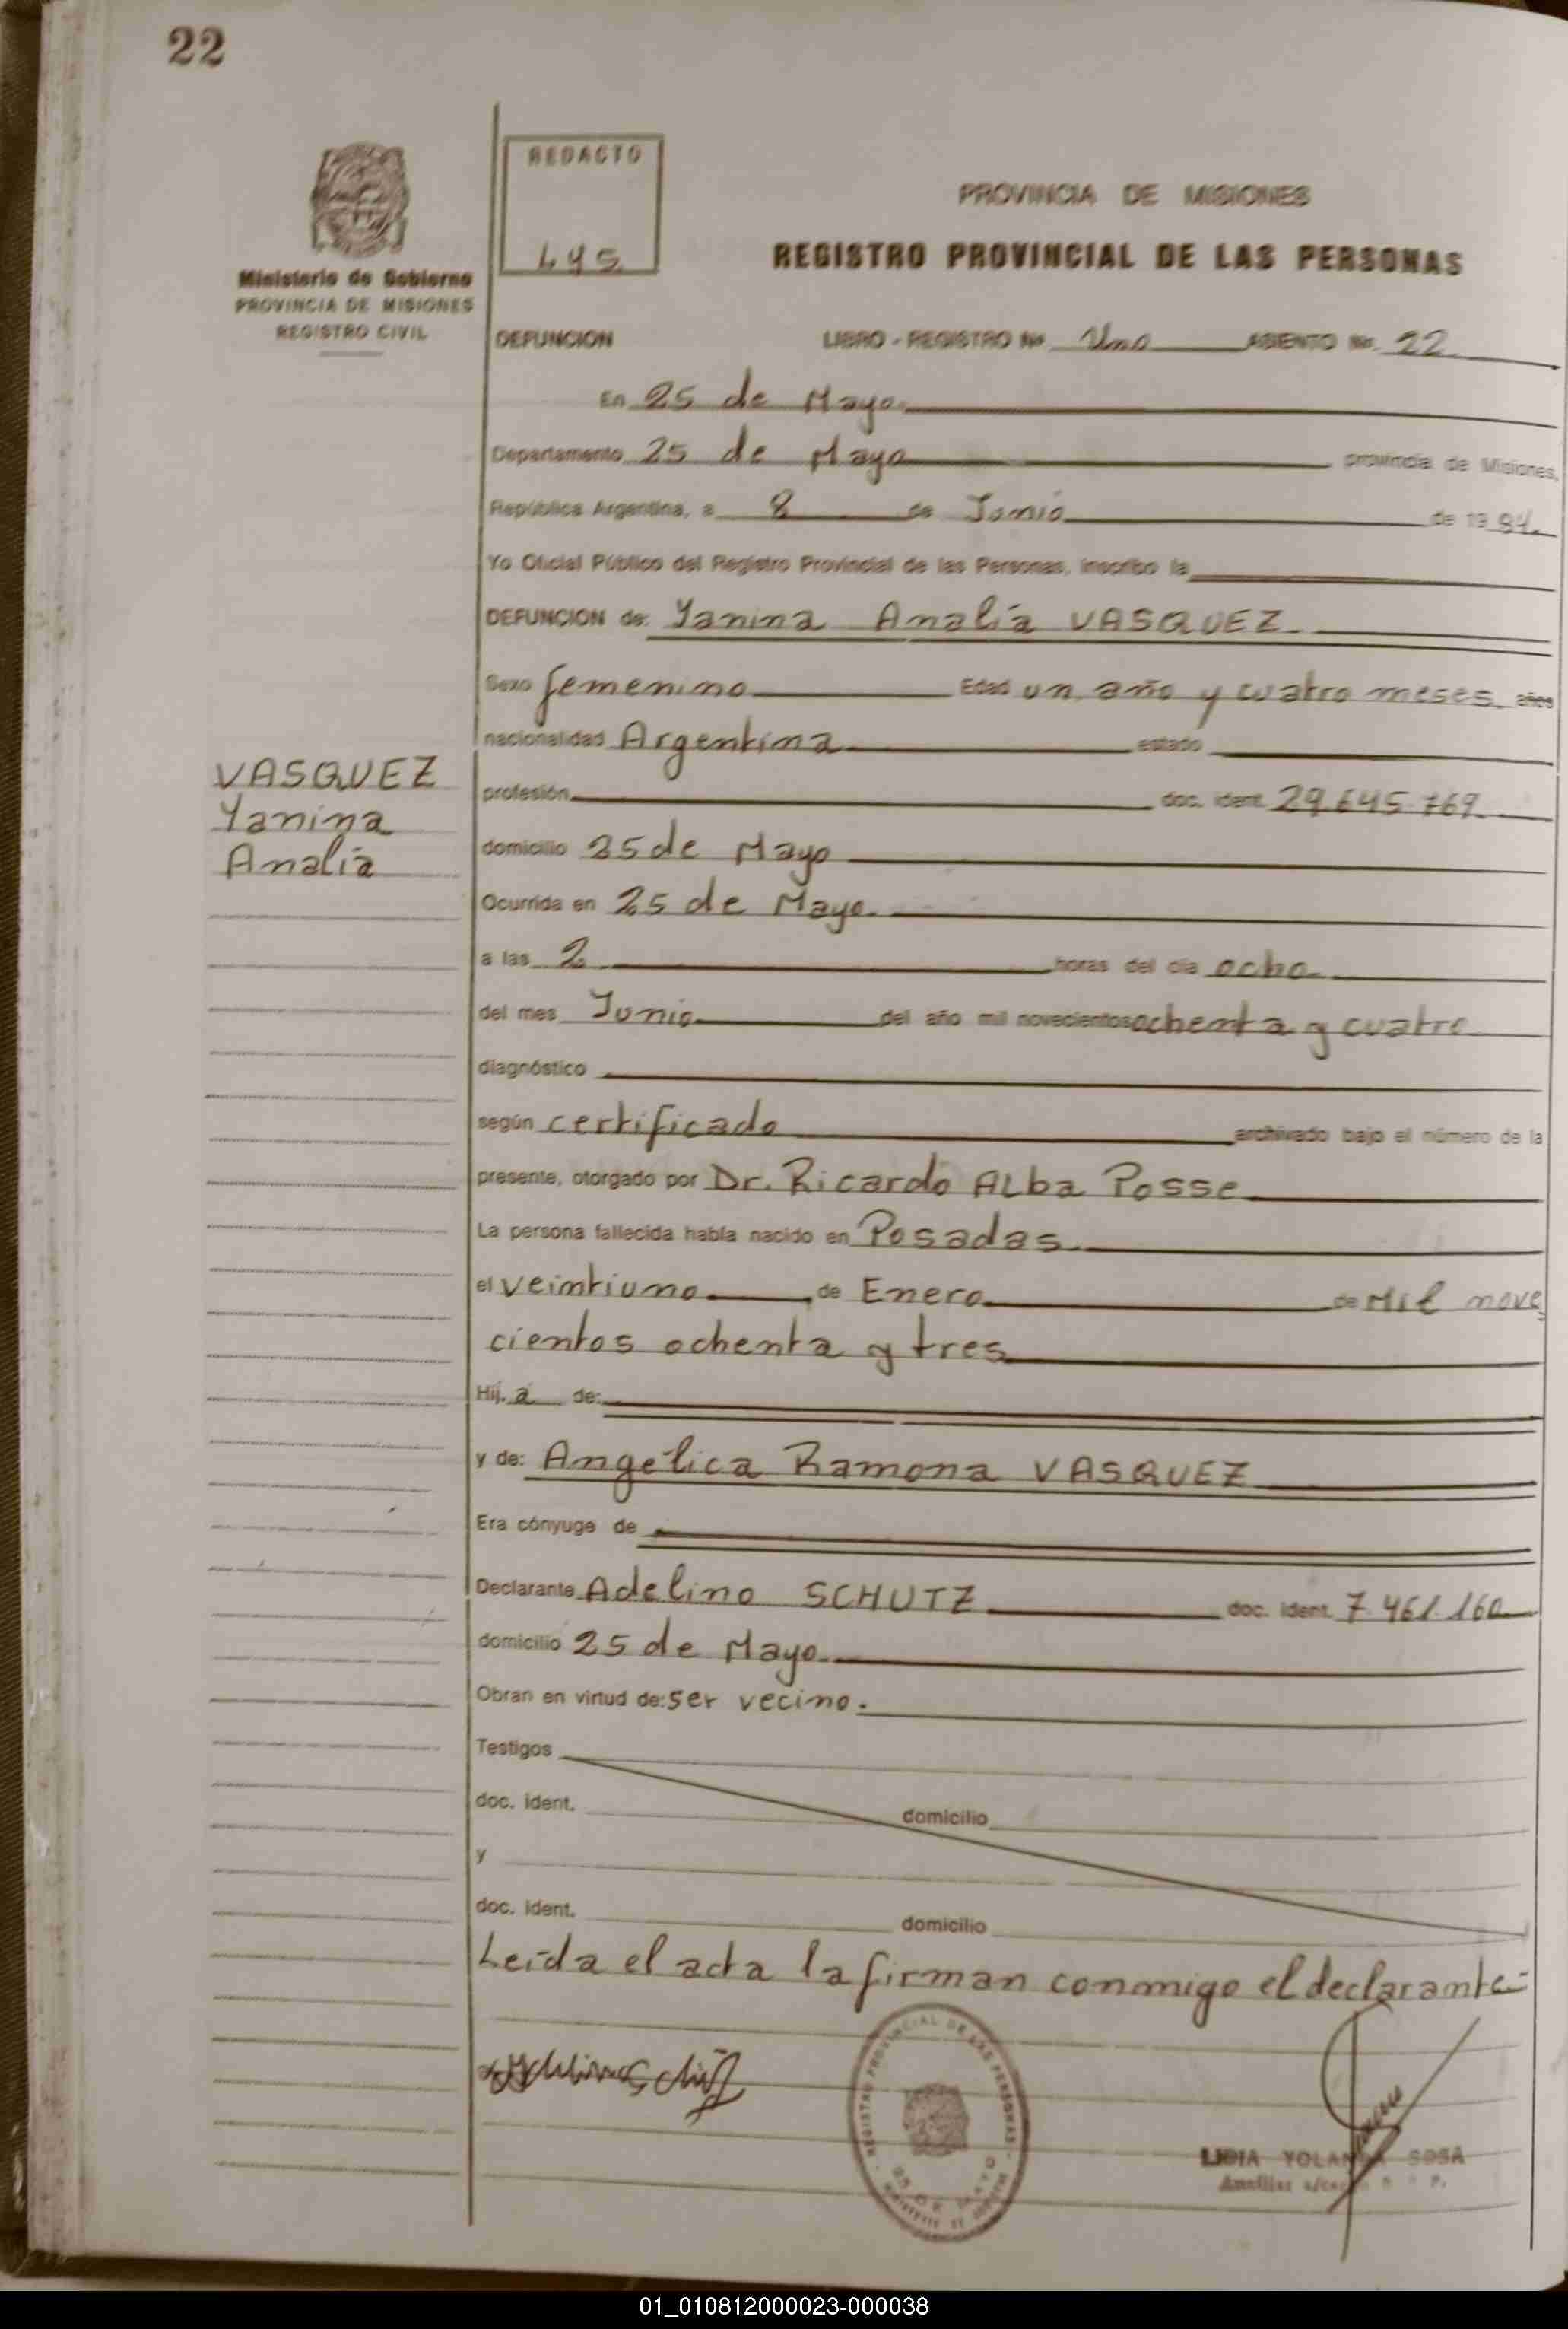 22
REDACTO
LYS
Ministerio de Gobierno
PROVINCIA DE MISIONES
REGISTRO CIVIL
PROVINCIA DE MISIONES
REGISTRO PROVINCIAL DE LAS PERSONAS
DEFUNCION LIBRO - REGISTRO No Uno ASIENTO No. 22
En 25 de Mayo
Departamento 25 de Mayo provincia de Misiones,
República Argentina, a 8 de Junio de 1984.
Yo Oficial Público del Registro Provincial de las Personas, inscribo la
DEFUNCION de: Yanina Analía VASQUEZ
Sexo femenino Edad un año y cuatro meses años
nacionalidad Argentina estado
VASQUEZ
Yanina
Analía
profesión doc. ident. 29.645.769
domicilio 25 de Mayo
Ocurrida en 25 de Mayo.
a las 2 horas del día ocho
del mes Junio del año mil novecientos ochenta y cuatro
diagnóstico
según certificado archivado bajo el número de la
presente, otorgado por Dr. Ricardo ALba Posse
La persona fallecida había nacido en Posadas
el veintiuno de Enero de Mil nove
cientos ochenta y tres
Hij. a de:
y de: Angélica Ramona VASQUEZ
Era cónyuge de
Declarante Adelino SCHUTZ doc. ident. 7.461.160
domicilio 25 de Mayo.
Obran en virtud de: ser vecino.
Testigos
doc. ident. domicilio
y
doc. ident. domicilio
Leída el acta la firman conmigo el declarante-
REGISTRO PROVINCIAL DE LAS PERSONAS
25 DE MAYO
LIDIA YOLANDA SOSA
01_010812000023-000038